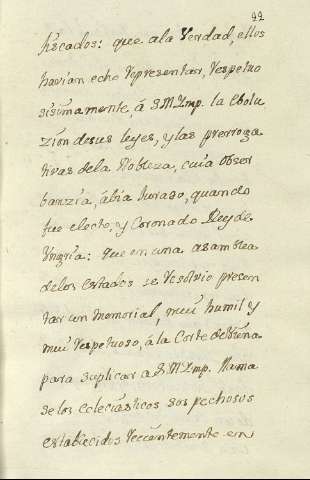 42
fiscados: que ala Verdad, ellos
havian echo Representar, Respetuo
sisimamente, á S.M.Imp. la Evolu
zión desus leyes, y las prerroga
tivas dela Nobleza, cuia obser
banzia, ábia Jurado, quando
fue electo, y Coronado Rey de
Ungria: que en una asamblea
delos estados se Resolvio presen
tar un memorial, mui humil y
mui Respetuoso, á la Corte de Viena
para suplicar a S.M.Imp. Llama
se los eclesiasticos sospechosos
establecidos Recientemente en